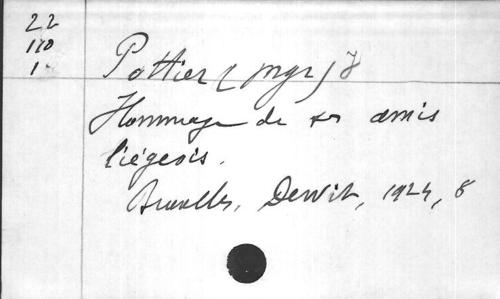 22
110
1
Pottier (Mgr)
Hommage de ses amis
liégeois.
Bruxelles, Dewit, 1924, 8